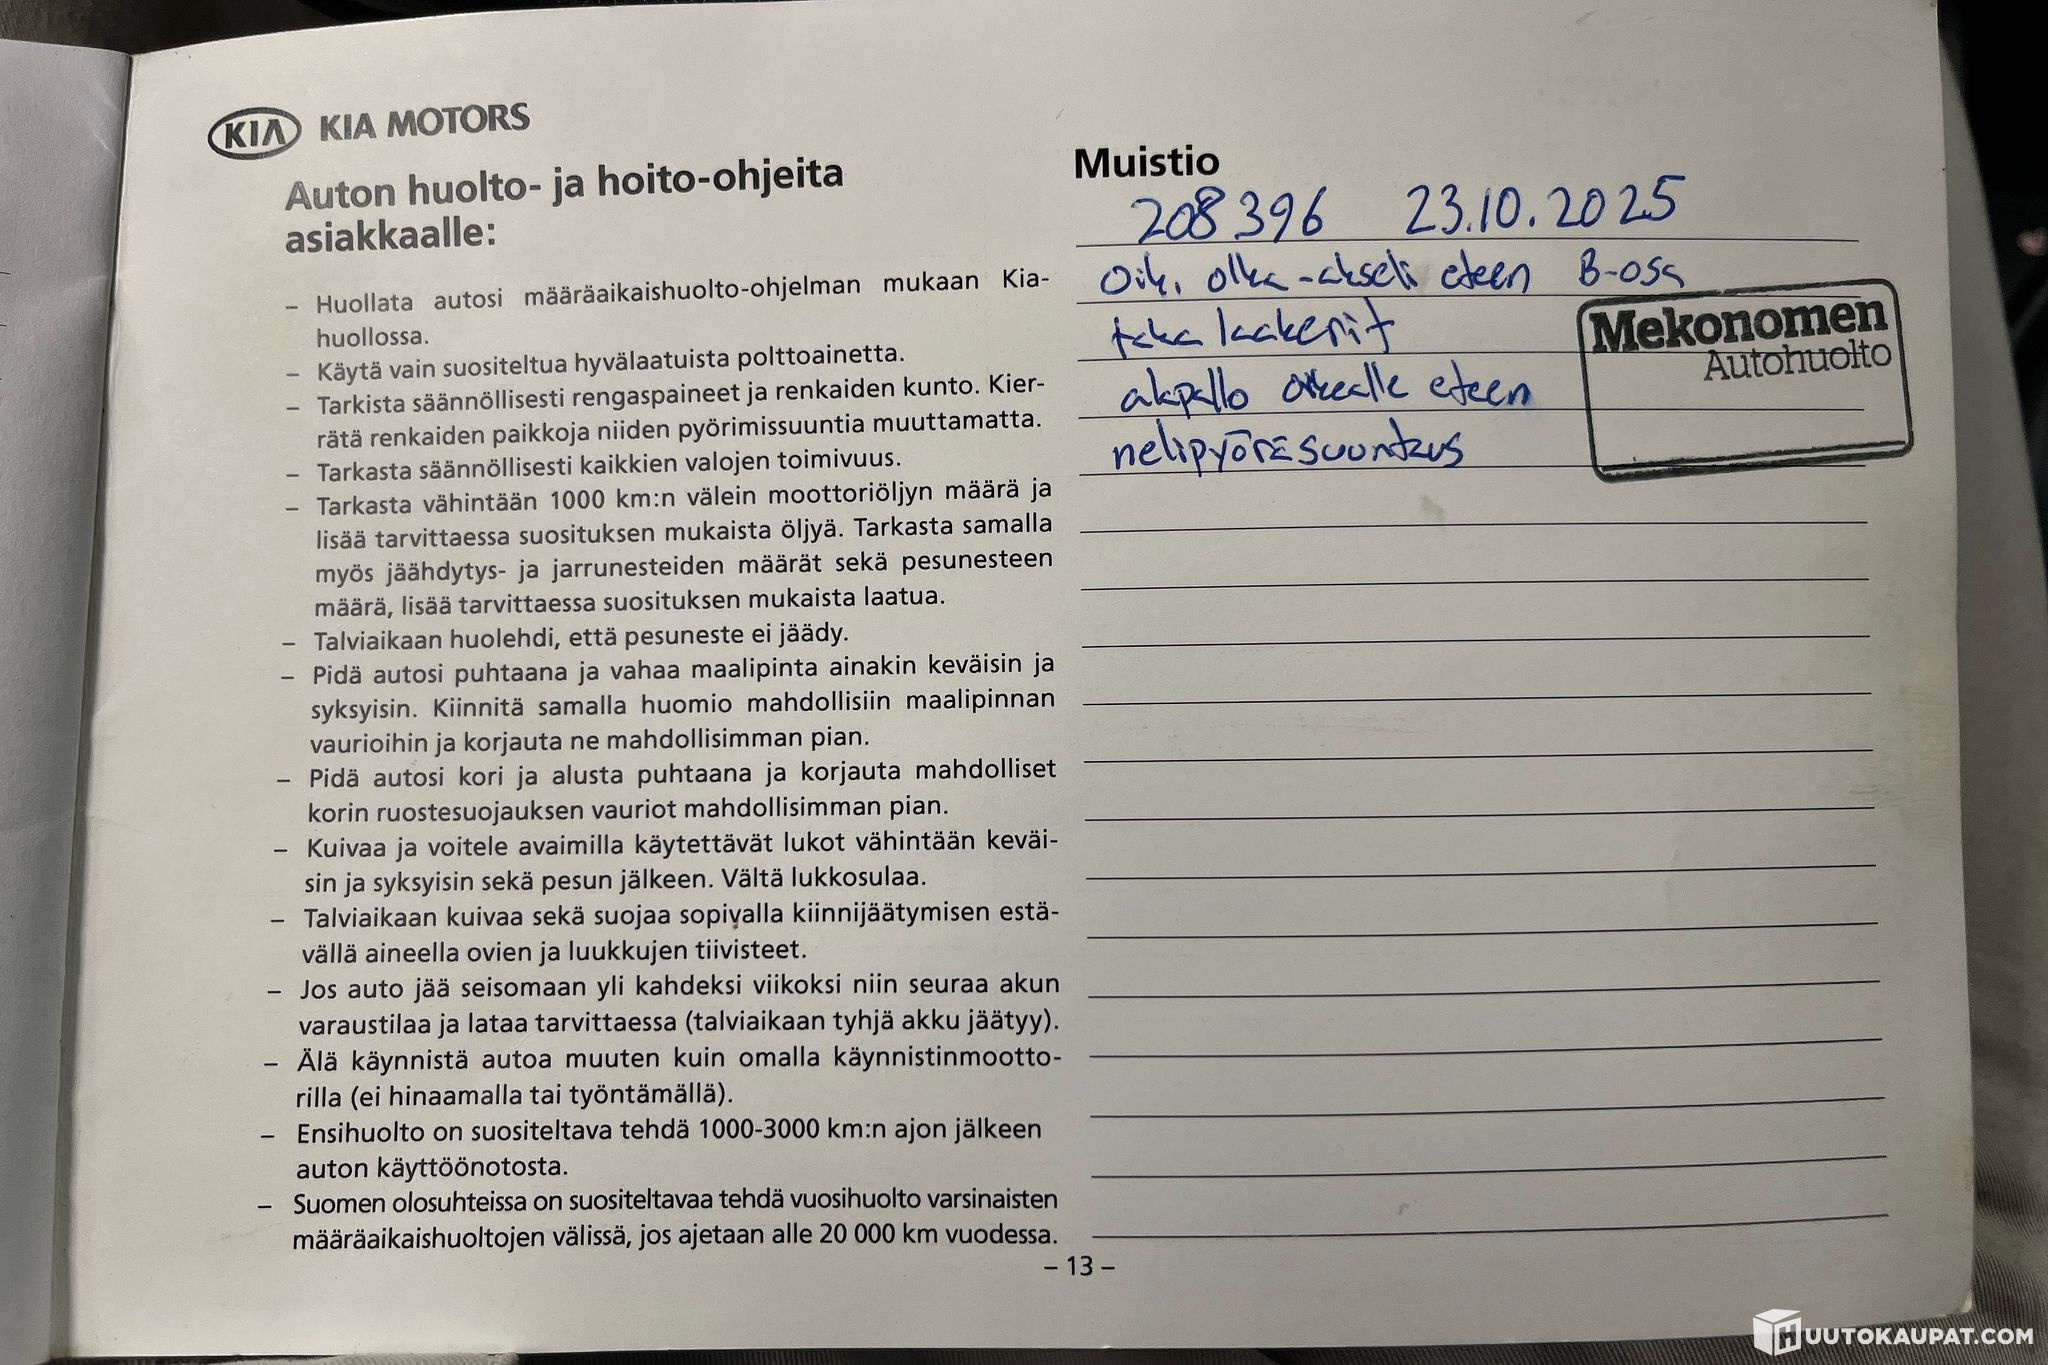 KIA KIA MOTORS
Auton huolto- ja hoito-ohjeita
asiakkaalle:
– Huollata autosi määräaikaishuolto-ohjelman mukaan Kia-
huollossa.
– Käytä vain suositeltua hyvälaatuista polttoainetta.
– Tarkista säännöllisesti rengaspaineet ja renkaiden kunto. Kier-
rätä renkaiden paikkoja niiden pyörimissuuntia muuttamatta.
– Tarkasta säännöllisesti kaikkien valojen toimivuus.
– Tarkasta vähintään 1000 km:n välein moottoriöljyn määrä ja
lisää tarvittaessa suosituksen mukaista öljyä. Tarkasta samalla
myös jäähdytys- ja jarrunesteiden määrät sekä pesunesteen
määrä, lisää tarvittaessa suosituksen mukaista laatua.
– Talviaikaan huolehdi, että pesuneste ei jäädy.
– Pidä autosi puhtaana ja vahaa maalipinta ainakin keväisin ja
syksyisin. Kiinnitä samalla huomio mahdollisiin maalipinnan
vaurioihin ja korjauta ne mahdollisimman pian.
– Pidä autosi kori ja alusta puhtaana ja korjauta mahdolliset
korin ruostesuojauksen vauriot mahdollisimman pian.
– Kuivaa ja voitele avaimilla käytettävät lukot vähintään keväi-
sin ja syksyisin sekä pesun jälkeen. Vältä lukkosulaa.
– Talviaikaan kuivaa sekä suojaa sopivalla kiinnijäätymisen estä-
vällä aineella ovien ja luukkujen tiivisteet.
– Jos auto jää seisomaan yli kahdeksi viikoksi niin seuraa akun
varaustilaa ja lataa tarvittaessa (talviaikaan tyhjä akku jäätyy).
– Älä käynnistä autoa muuten kuin omalla käynnistinmootto-
rilla (ei hinaamalla tai työntämällä).
– Ensihuolto on suositeltava tehdä 1000-3000 km:n ajon jälkeen
auton käyttöönotosta.
– Suomen olosuhteissa on suositeltavaa tehdä vuosihuolto varsinaisten
määräaikaishuoltojen välissä, jos ajetaan alle 20 000 km vuodessa.
Muistio
208396 23.10.2025
Oik. olka-akseli eteen B-osa
taka laakerit
alapallo oikealle eteen
nelipyöräsuuntaus
Mekonomen
Autohuolto
– 13 –
HUUTOKAUPAT.COM